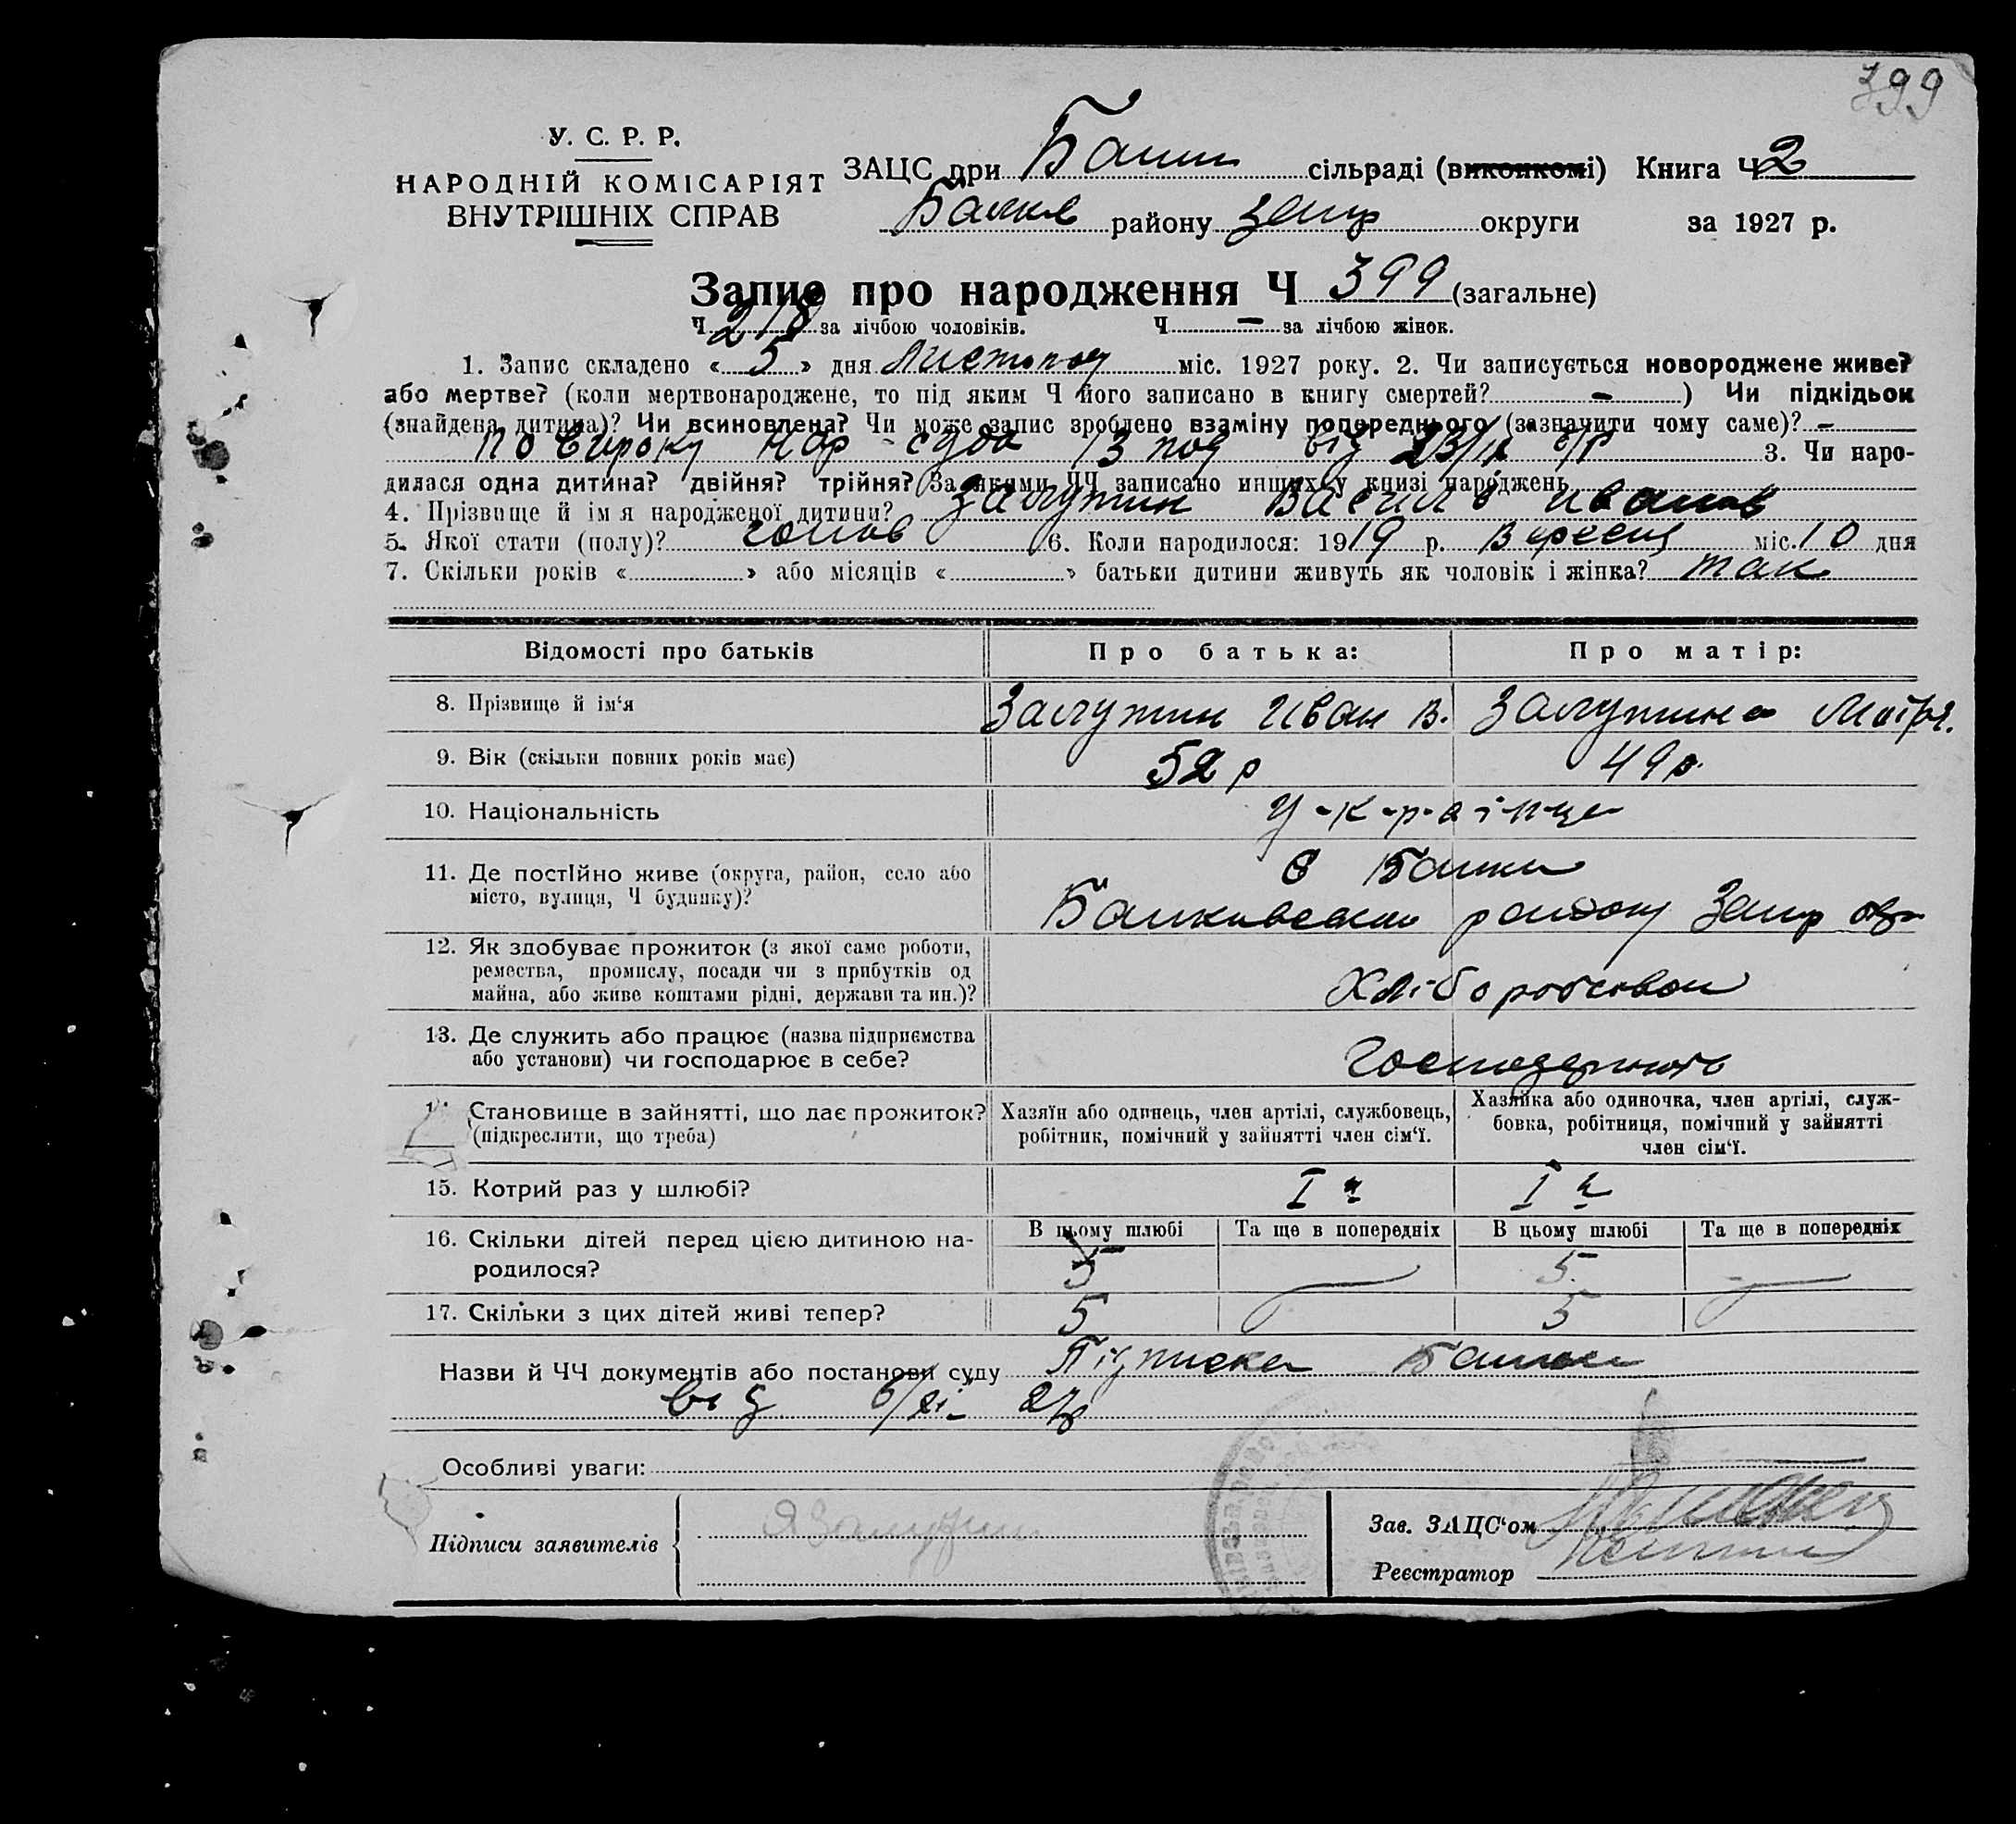 399
У. С. Р. Р.
НАРОДНІЙ КОМІСАРІЯТ
ВНУТРІШНІХ СПРАВ
ЗАЦС при сільраді (виконкомі) Книга Ч 2
району округи за 1927 р.
Запис про народження Ч 399 (загальне)
Ч 218 за лічбою чоловіків. Ч — за лічбою жінок.
1. Запис складено « 5 » дня Листопад міс. 1927 року. 2. Чи записується новороджене живе?
або мертве? (коли мертвонароджене, то під яким Ч його записано в книгу смертей? - ) Чи підкідьок
(знайдена дитина)? Чи всиновлена? Чи може запис зроблено взаміну попереднього (зазначити чому саме)? -
По вироку Нар суда 13 від 3. Чи наро-
дилася одна дитина? двійня? трійня? За якими ЧЧ записано инших у книзі народжень
4. Прізвище й ім я народженої дитини? Залужин Василь Иванов
5. Якої стати (полу)? чолов 6. Коли народилося: 1919 р. Вересня міс. 10 дня
7. Скільки років « » або місяців « » батьки дитини живуть як чоловік і жінка? так
Відомості про батьків Про батька: Про матір:
8. Прізвище й ім‘я Залужин Иван В. Залужина
9. Вік (скільки повних років має) 52 р 49 р.
10. Національність У-к-р-а-ї-н-це
11. Де постійно живе (округа, район, село або
місто, вулиця, Ч будинку)?
району Запр окр
12. Як здобуває прожиток (з якої саме роботи,
ремества, промислу, посади чи з прибутків од
майна, або живе коштами рідні, держави та ин.)?
13. Де служить або працює (назва підприємства
або установи) чи господарює в себе?
Становище в зайнятті, що дає прожиток? Хазяїн або одинець, член артілі, службовець, Хазяйка або одиночка, член артілі, служ-
(підкреслити, що треба) робітник, помічний у зайнятті член сім‘ї. бовка, робітниця, помічний у зайнятті
член сім‘ї.
15. Котрий раз у шлюбі? І й І й
16. Скільки дітей перед цією дитиною на- В цьому шлюбі Та ще в попередніх В цьому шлюбі Та ще в попередніх
родилося? 5 — 5 —
17. Скільки з цих дітей живі тепер? 5 5
Назви й ЧЧ документів або постанови суду Підписка
від
Особливі уваги:
Підписи заявителів
Зав. ЗАЦС‘ом
Реєстратор